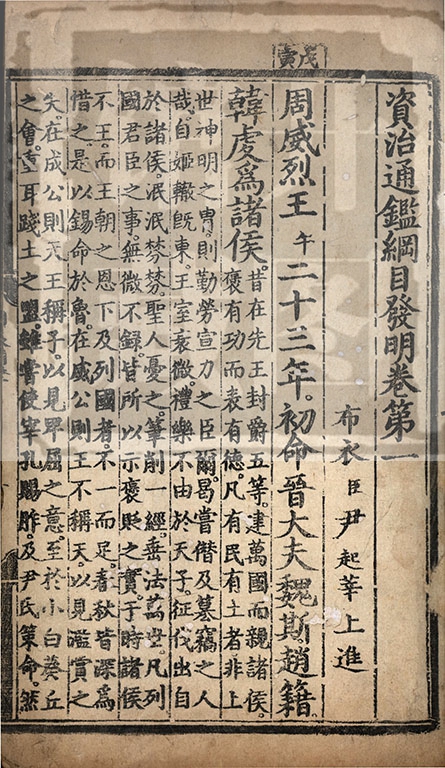 戊寅
資治通鑑綱目發明卷第一
布衣臣尹起莘上進
周威烈王午二十三年。初命晉大夫魏斯趙籍
韓虔爲諸侯。昔在先王封爵五等。建萬國而親諸侯。
褒有功而表有德。凡有民有土者非上
世神明之冑。則勤勞宣力之臣爾。曷嘗僭及墓竊之人
哉。自姬轍旣東。王室衰微。禮樂不由於天子。征伐出自
於諸侯。泯泯棼棼。聖人憂之。筆削一經。垂法萬世。凡列
國君臣之事。無微不錄。皆所以示褒貶之實。于時諸侯
不王。而王朝之恩下及列國者。不一而足。春秋皆深爲
惜之。是以錫命於魯。在威公則王不稱天。以見濫賞之
失。在成公則天王稱子。以見卑屈之意。至於小白葵丘
之會。重耳踐土之盟。雖嘗使宰孔賜胙。及尹氏策命。然